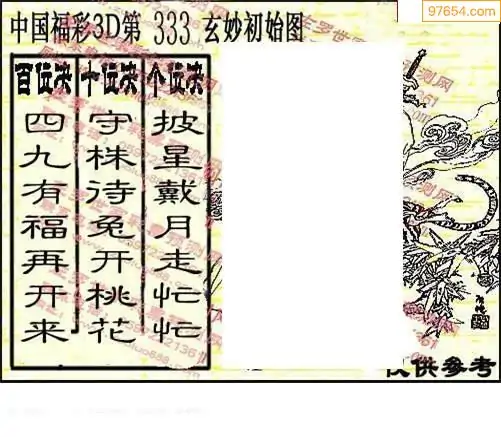 97654.com
中国福彩3D第 333 玄妙初始图
百位决 十位决 个位决
四九有福再开来
守株待兔开桃花
披星戴月走忙忙
仅供参考